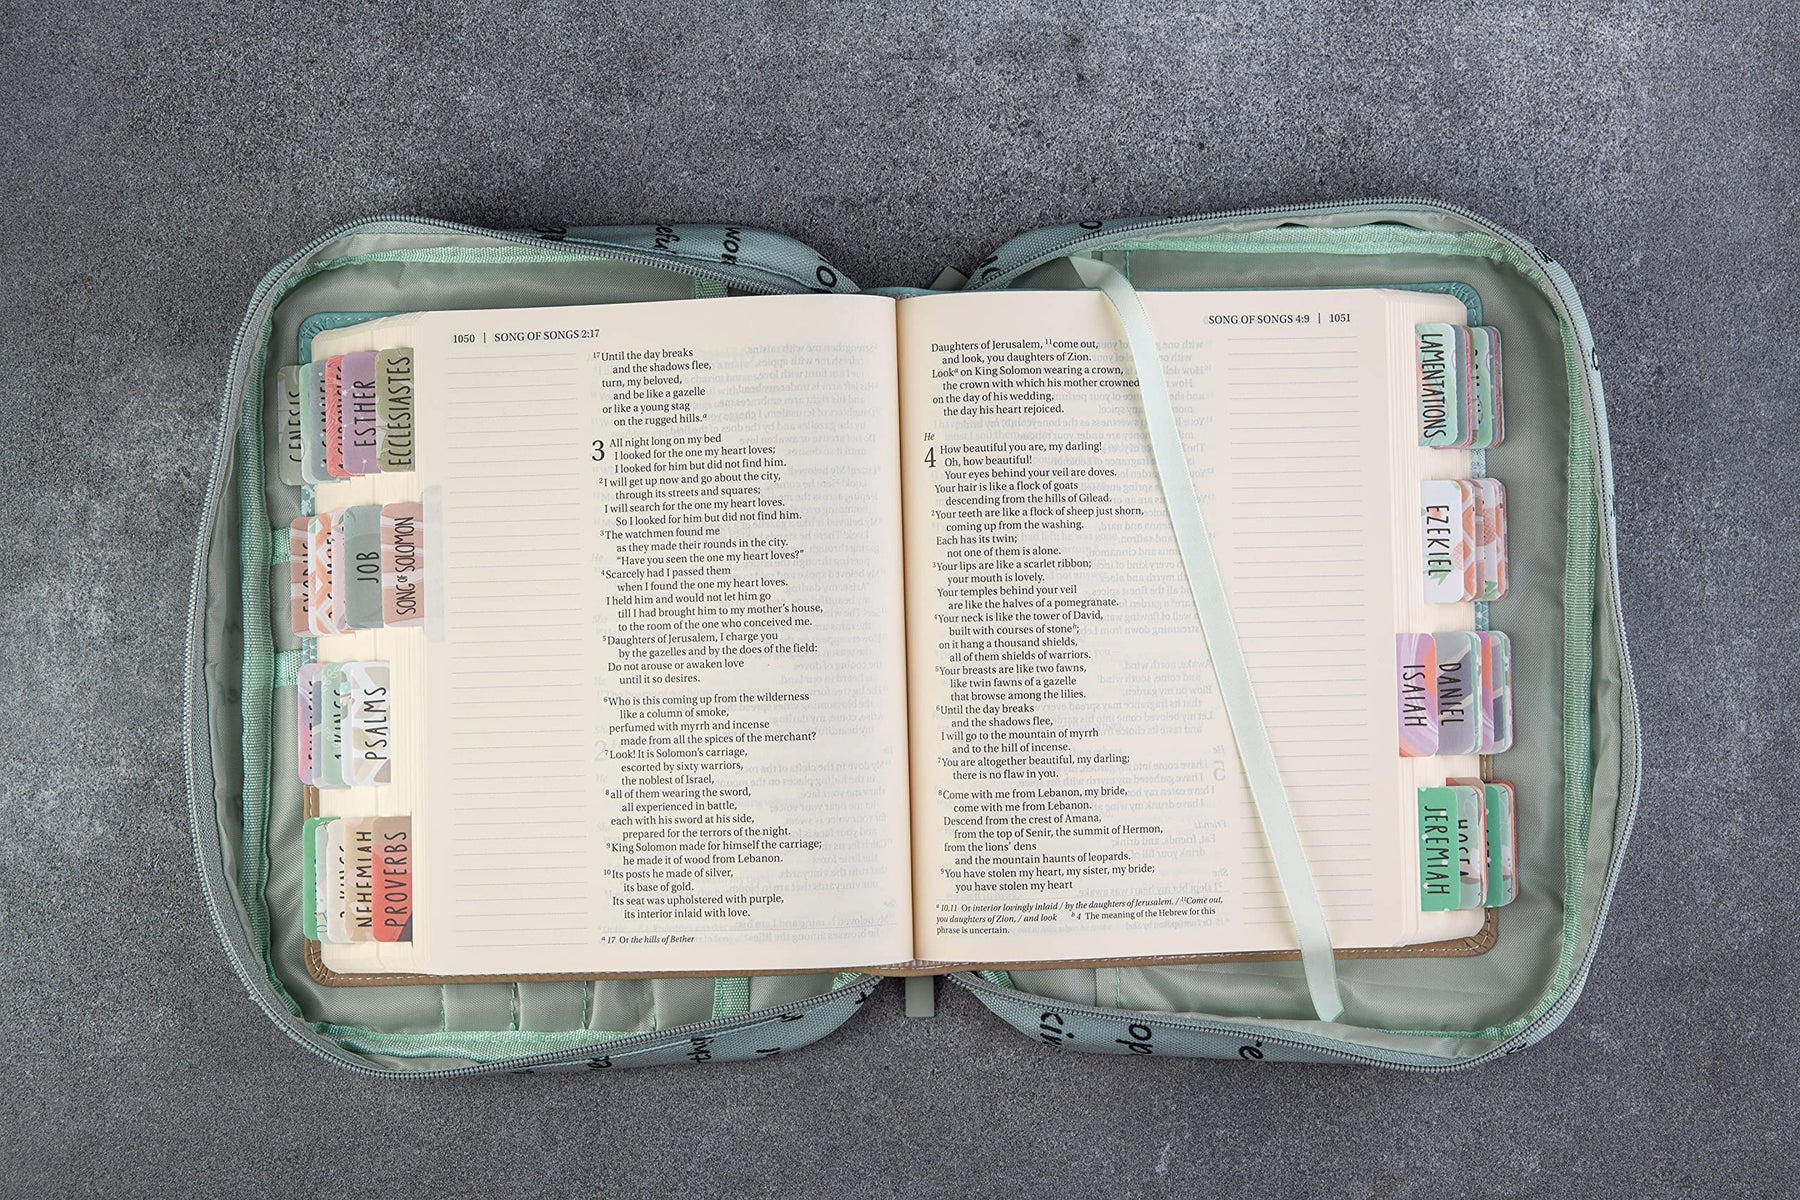 1050 | SONG OF SONGS 2:17
17Until the day breaks
and the shadows flee,
turn, my beloved,
and be like a gazelle
or like a young stag
on the rugged hills.a
3 All night long on my bed
I looked for the one my heart loves;
I looked for him but did not find him.
2I will get up now and go about the city,
through its streets and squares;
I will search for the one my heart loves.
So I looked for him but did not find him.
3The watchmen found me
as they made their rounds in the city.
“Have you seen the one my heart loves?”
4Scarcely had I passed them
when I found the one my heart loves.
I held him and would not let him go
till I had brought him to my mother’s house,
to the room of the one who conceived me.
5Daughters of Jerusalem, I charge you
by the gazelles and by the does of the field:
Do not arouse or awaken love
until it so desires.
6Who is this coming up from the wilderness
like a column of smoke,
perfumed with myrrh and incense
made from all the spices of the merchant?
7Look! It is Solomon’s carriage,
escorted by sixty warriors,
the noblest of Israel,
8all of them wearing the sword,
all experienced in battle,
each with his sword at his side,
prepared for the terrors of the night.
9King Solomon made for himself the carriage;
he made it of wood from Lebanon.
10Its posts he made of silver,
its base of gold.
Its seat was upholstered with purple,
its interior inlaid with love.
a 17 Or the hills of Bether
SONG OF SONGS 4:9 | 1051
Daughters of Jerusalem, 11come out,
and look, you daughters of Zion.
Looka on King Solomon wearing a crown,
the crown with which his mother crowned
on the day of his wedding,
the day his heart rejoiced.
He
4 How beautiful you are, my darling!
Oh, how beautiful!
Your eyes behind your veil are doves.
Your hair is like a flock of goats
descending from the hills of Gilead.
2Your teeth are like a flock of sheep just shorn,
coming up from the washing.
Each has its twin;
not one of them is alone.
3Your lips are like a scarlet ribbon;
your mouth is lovely.
Your temples behind your veil
are like the halves of a pomegranate.
4Your neck is like the tower of David,
built with courses of stoneb;
on it hang a thousand shields,
all of them shields of warriors.
5Your breasts are like two fawns,
like twin fawns of a gazelle
that browse among the lilies.
6Until the day breaks
and the shadows flee,
I will go to the mountain of myrrh
and to the hill of incense.
7You are altogether beautiful, my darling;
there is no flaw in you.
8Come with me from Lebanon, my bride,
come with me from Lebanon.
Descend from the crest of Amana,
from the top of Senir, the summit of Hermon,
from the lions’ dens
and the mountain haunts of leopards.
9You have stolen my heart, my sister, my bride;
you have stolen my heart
a 10,11 Or interior lovingly inlaid / by the daughters of Jerusalem. / 11Come out,
you daughters of Zion, / and look b 4 The meaning of the Hebrew for this
phrase is uncertain.
GENESIS
ESTHER
ECCLESIASTES
JOB
SONG OF SOLOMON
PSALMS
NEHEMIAH
PROVERBS
LAMENTATIONS
EZEKIEL
ISAIAH
DANIEL
JEREMIAH
HOSEA